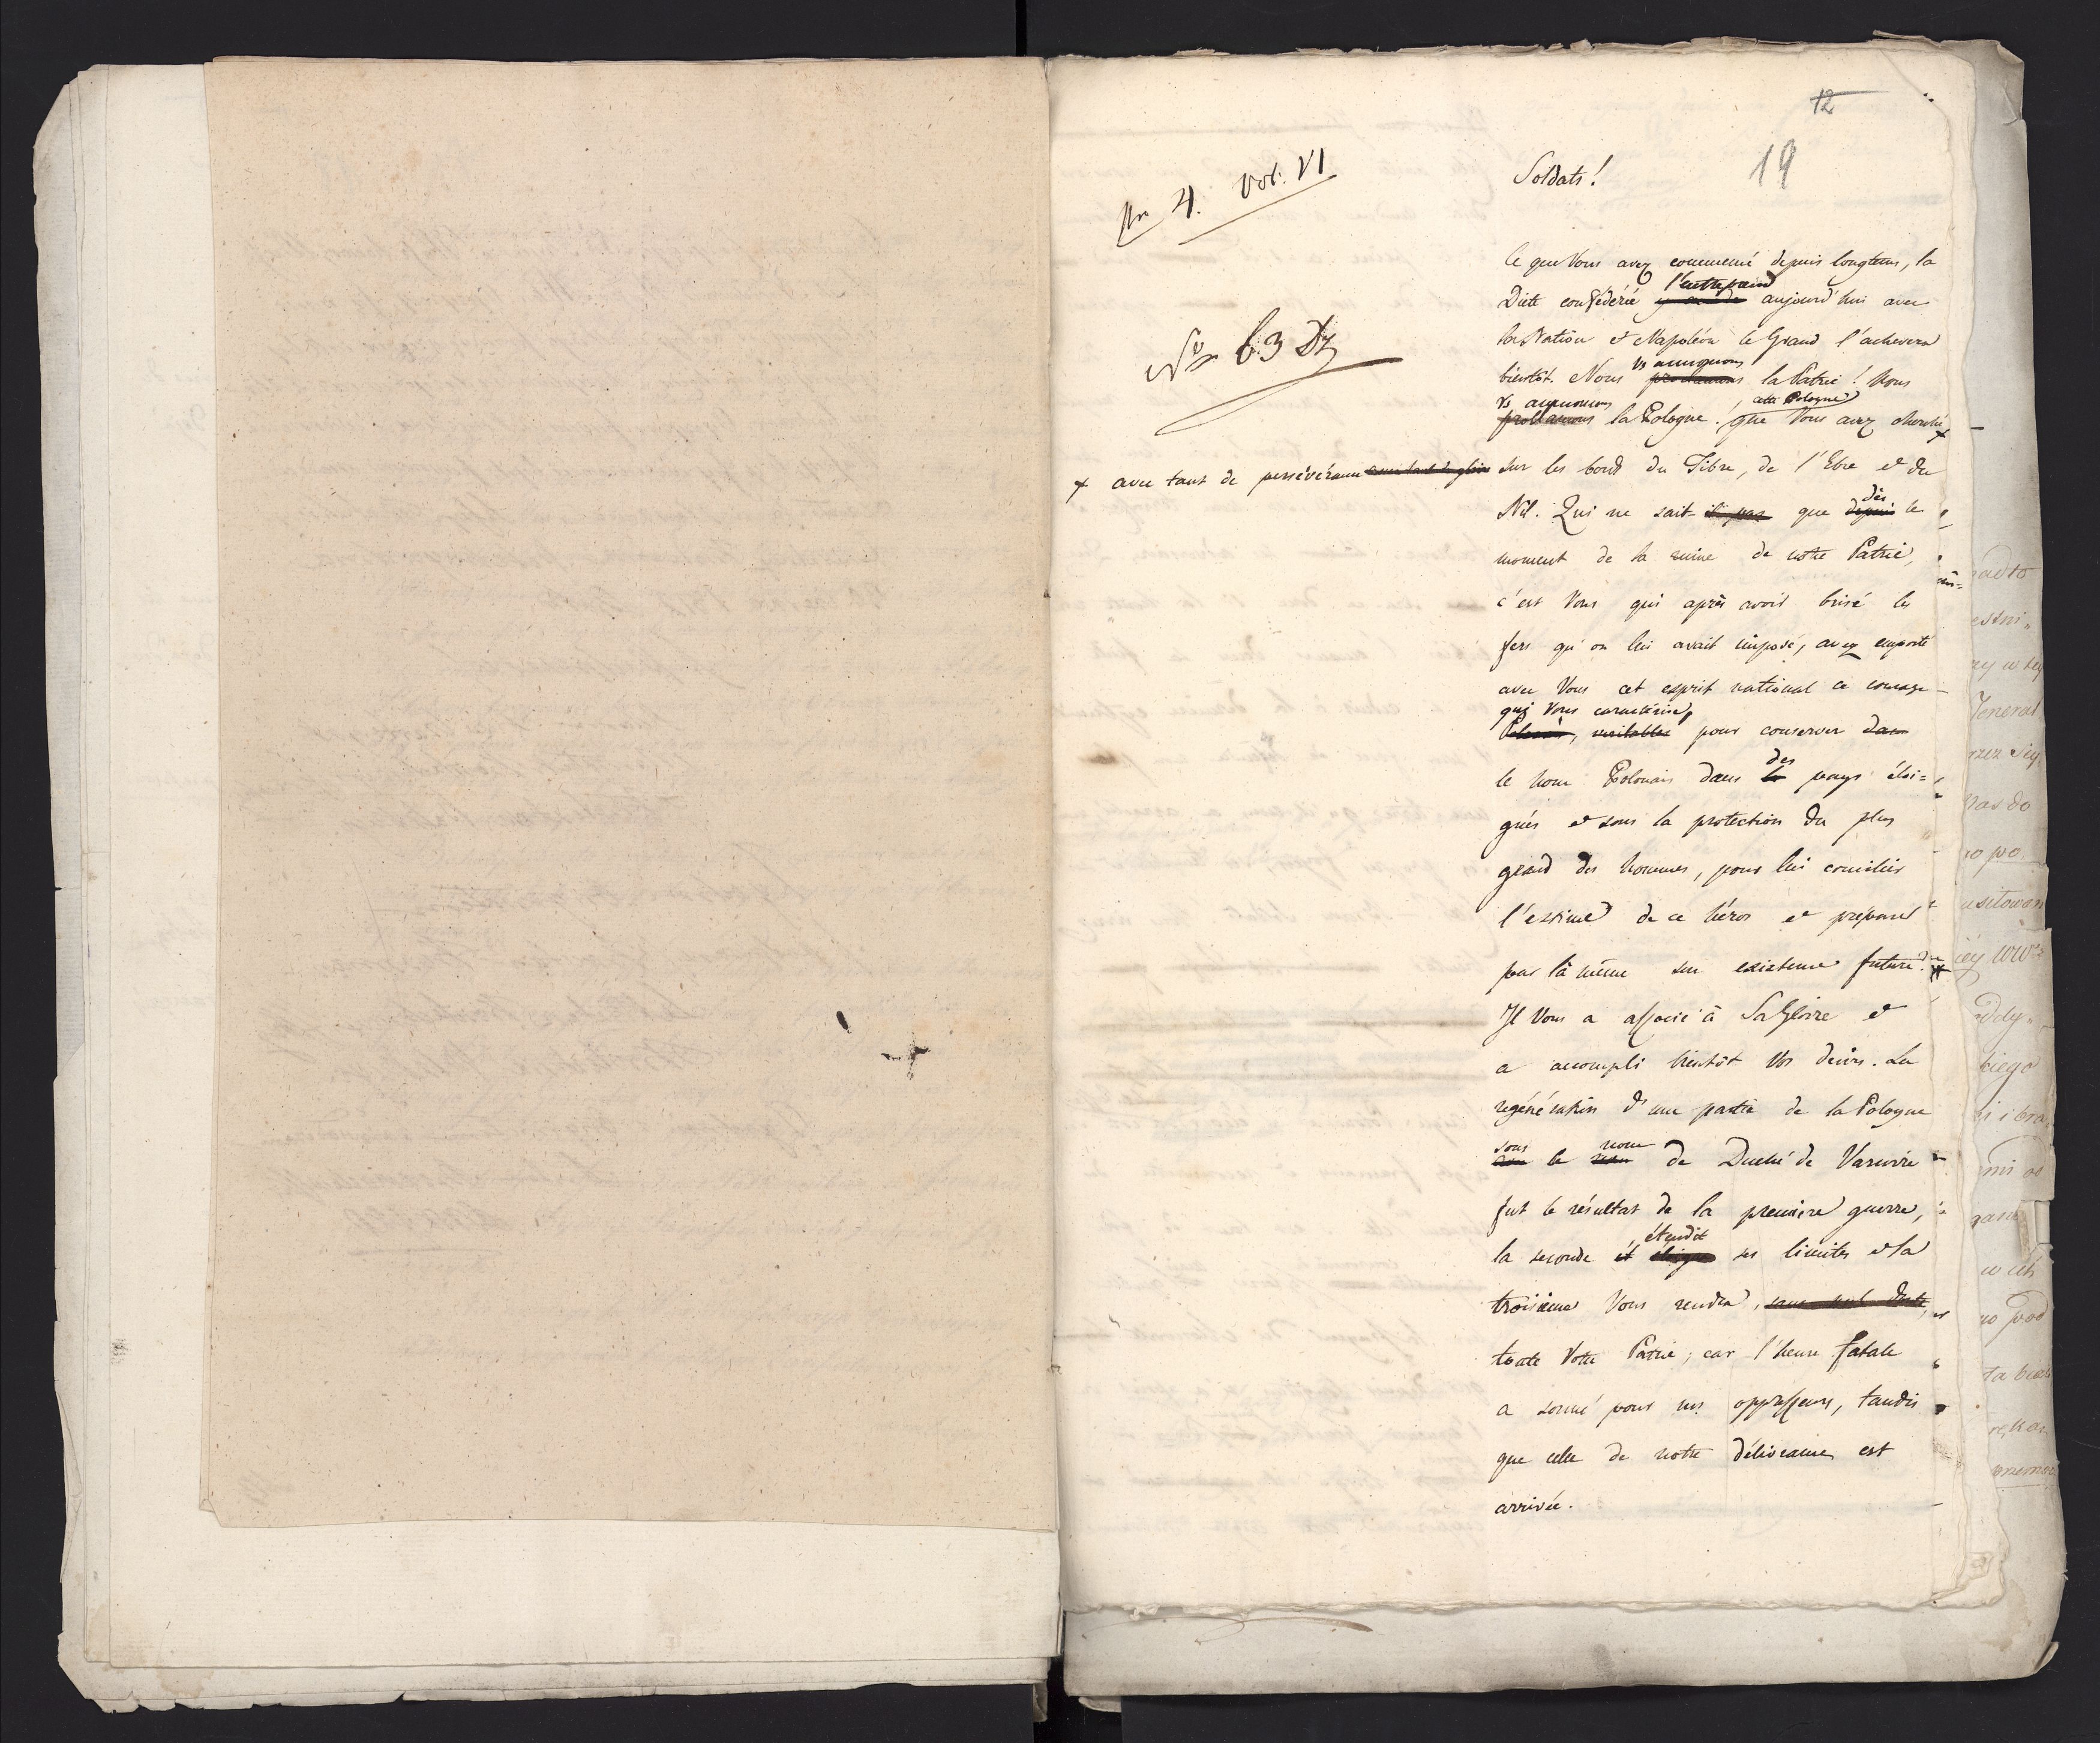 12
19
Nr 4. Vol. VI
No 63 Dz
Soldats!
Ce que Vous avez commencé depuis longtems, la
l'entreprend
Diète confédérée aujourd'hui avec
la Nation et Napoléon le Grand l'achevera
vs annonçons
bientôt. Nous proclamons la Patrie! Nous
vs annonçons , cette Pologne
proclamons la Pologne! que Vous avez cherché +
+ avec tant de persévérance avec tant de gloire
sur les bords du Tibre, de l'Ebre et du
dès
Nil. Qui ne sait il pas que depuis le
moment de la ruine de notre Patrie,
c'est Vous qui après avoir brisé les
fers qu'on lui avait imposé, avez emporté
avec Vous cet esprit national ce courage
qui Vous caractérise,
Polonais, veritables pour conserver dans
des
le nom Polonais dans le pays éloi=
gnés et sous la protection du plus
grand des hommes, pour lui concilier
l'estime de ce héros et préparer
par là même son existence future.
Il Vous a associé à Sa Gloire et
a accompli bientôt Vos desirs. La
regénération d'une partie de la Pologne
sous nom
sous le nom de Duché de Varsovie
fut le résultat de la première guerre,
étendit
la seconde et éloigna ses limites et la
troisieme Vous rendra, sans nul doute,
toute Votre Patrie; car l'heure fatale
a sonné pour nos oppresseurs, tandis
que celle de notre délivrance est
arrivée.